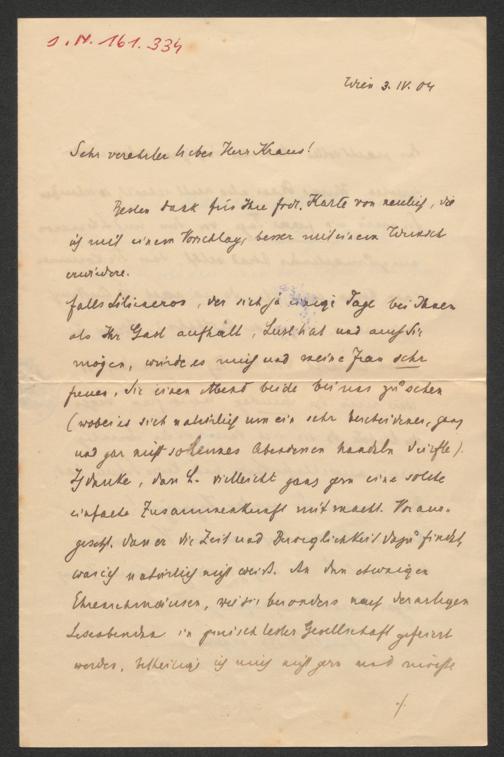 J. N. 161.334
Wien 3. IV. 04
Sehr verehrter lieber Herr Kraus!
Besten Dank für Ihre frdl. Karte von neulich, die
ich mit einem Vorschlag, besser mit einem Wunsch
erwidere.
Falls Liliencron, der sich ja einige Tage bei Ihnen
als Ihr Gast aufhält, Lust hat und auch Sie
mögen, würde es mich und meine Frau sehr
freuen, Sie einen Abend beide bei uns zu sehen
(wobei es sich natürlich um ein sehr bescheidenes, ganz
und gar nicht solennes Abendessen handeln dürfte).
Ich denke, dass L. vielleicht ganz gern eine solche
einfache Zusammenkunft mitmacht. Voraus-
gesetzt, dass er die Zeit und Beweglichkeit dazu findet,
was ich natürlich nicht weiß. An den etwaigen
Ehrenschmäusen, wie sie besonders nach derartigen
Leseabenden in gemischtester Gesellschaft gefeiert
werden, betheilige ich mich nicht gern und möchte
./.